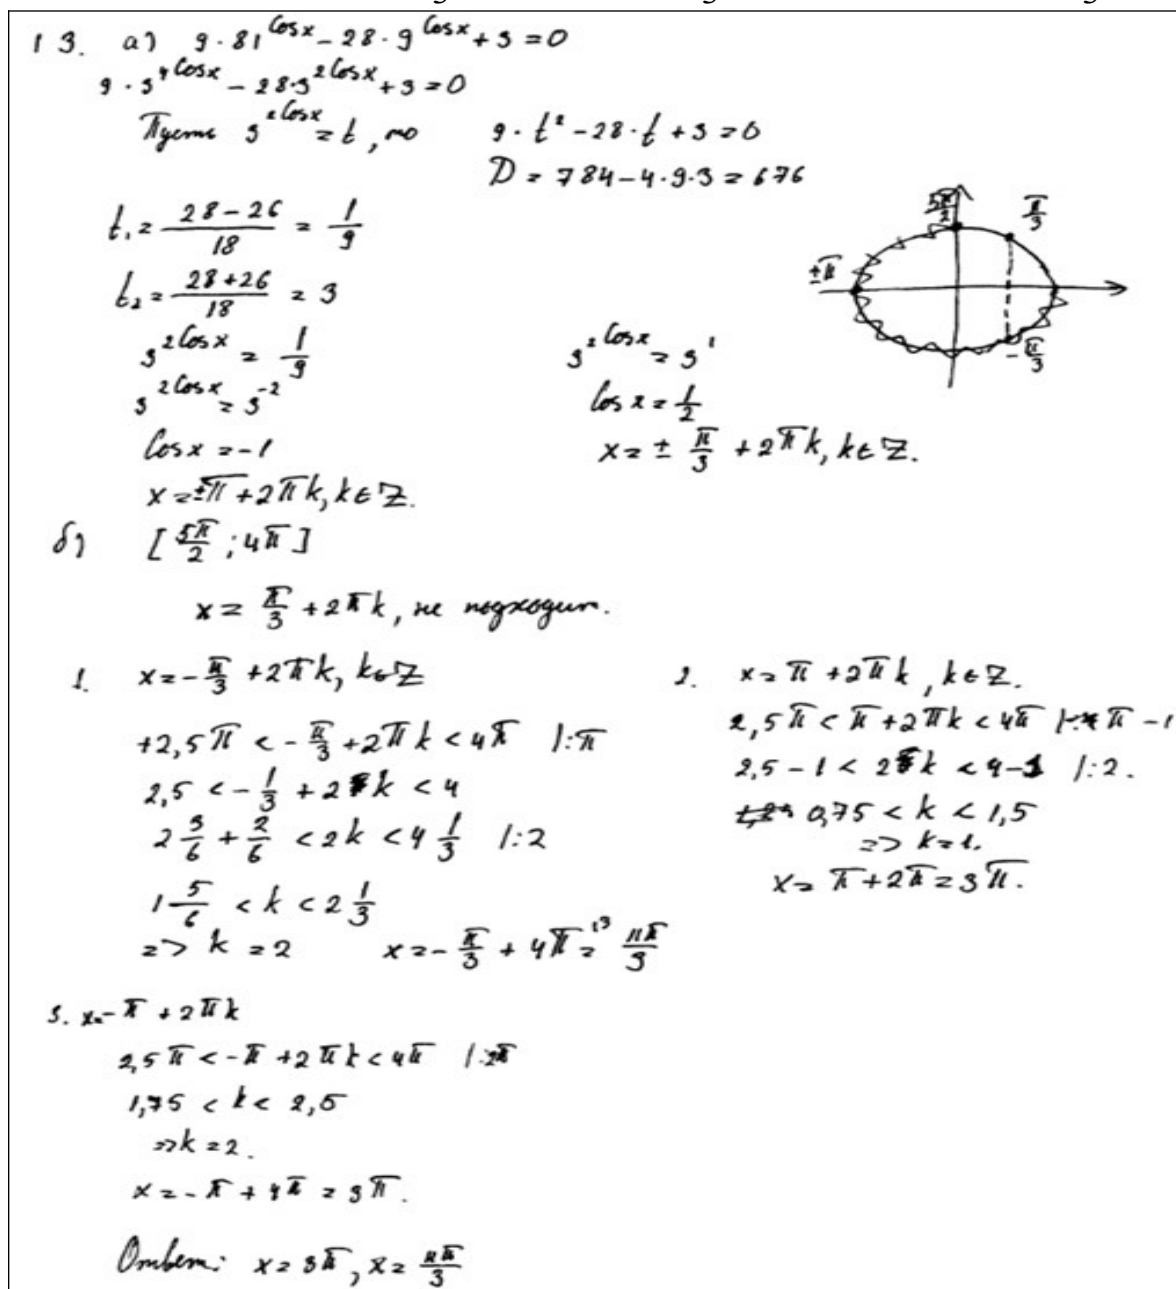 13. а) 9·81^{cosx} − 28·9^{cosx} + 3 = 0
9·3^{4cosx} − 28·3^{2cosx} + 3 = 0
Пусть 3^{2cosx} = t, то 9·t² − 28·t + 3 = 0
D = 784 − 4·9·3 = 676
t₁ = (28 − 26)/18 = 1/9
t₂ = (28 + 26)/18 = 3
5π/2
π/3
±π
−π/3
3^{2cosx} = 1/9
3^{2cosx} = 3^{-2}
cosx = −1
x = ±π + 2πk, k∈Z.
3^{2cosx} = 3^1
cosx = 1/2
x = ± π/3 + 2πk, k∈Z.
б) [5π/2 ; 4π]
x = π/3 + 2πk, не подходит.
1. x = −π/3 + 2πk, k∈Z
+2,5π < −π/3 + 2πk < 4π |:π
2,5 < −1/3 + 2k < 4
2 3/6 + 2/6 < 2k < 4 1/3 |:2
1 5/6 < k < 2 1/3
=> k = 2 x = −π/3 + 4π = 11π/3
2. x = π + 2πk, k∈Z.
2,5π < π + 2πk < 4π |: π −1
2,5 − 1 < 2k < 4 − 1 |:2.
0,75 < k < 1,5
=> k = 1.
x = π + 2π = 3π.
3. x = −π + 2πk
2,5π < −π + 2πk < 4π |:2π
1,75 < k < 2,5
=> k = 2.
x = −π + 4π = 3π.
Ответ: x = 3π, x = 11π/3